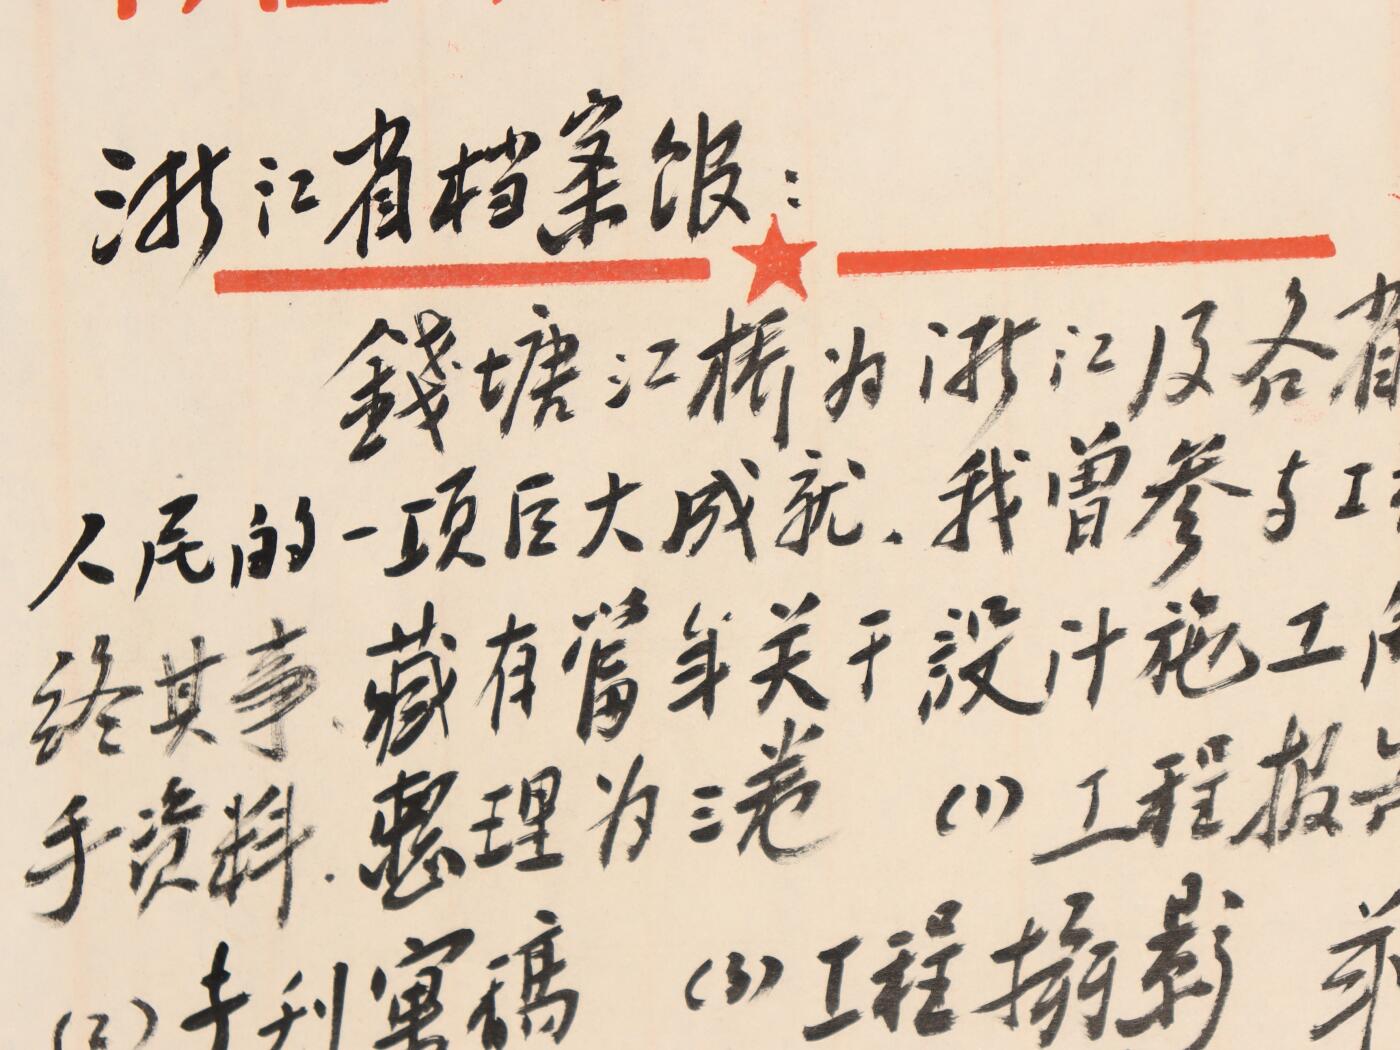 浙江省档案馆：
錢塘江桥为浙江及各省
人民的一项巨大成就．我曾参与工
终其事、藏有當年关于設计施工
手资料．整理为三卷 (1)工程报告
(2)专刊寓稿 (3)工程摄影